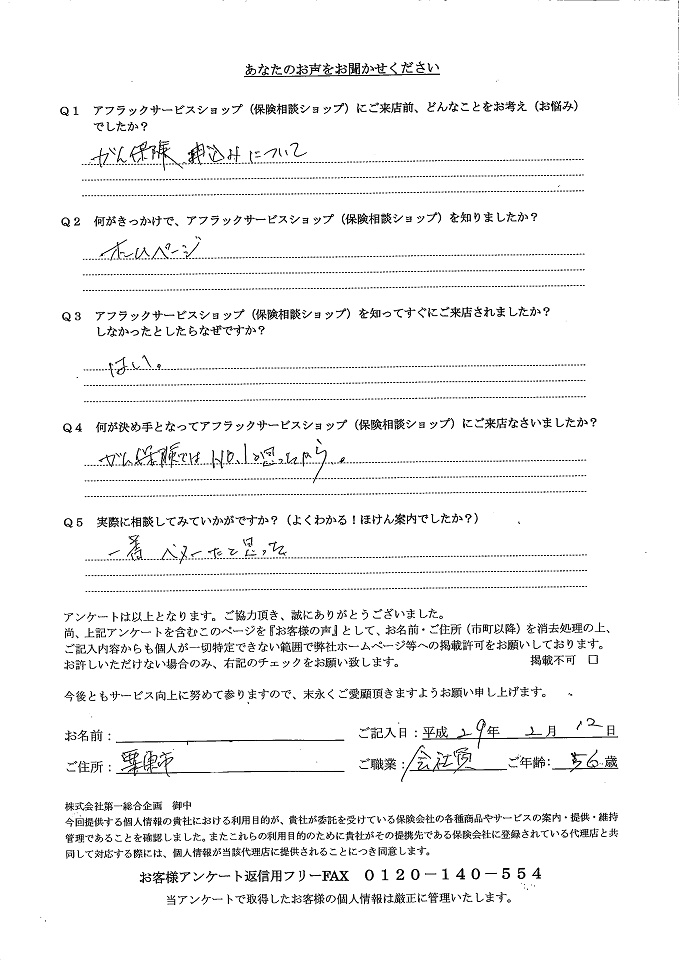 あなたのお声をお聞かせください
Q1 アフラックサービスショップ（保険相談ショップ）にご来店前、どんなことをお考え（お悩み）
でしたか？
がん保険、申込みについて
Q2 何がきっかけで、アフラックサービスショップ（保険相談ショップ）を知りましたか？
ホームページ
Q3 アフラックサービスショップ（保険相談ショップ）を知ってすぐにご来店されましたか？
しなかったとしたらなぜですか？
はい。
Q4 何が決め手となってアフラックサービスショップ（保険相談ショップ）にご来店なさいましたか？
がん保険ではNO.1と思ったから。
Q5 実際に相談してみていかがですか？（よくわかる！ほけん案内でしたか？）
一番 ベターだと思った
アンケートは以上となります。ご協力頂き、誠にありがとうございました。
尚、上記アンケートを含むこのページを『お客様の声』として、お名前・ご住所（市町以降）を消去処理の上、
ご記入内容からも個人が一切特定できない範囲で弊社ホームページ等への掲載許可をお願いしております。
お許しいただけない場合のみ、右記のチェックをお願い致します。 掲載不可 □
今後ともサービス向上に努めて参りますので、末永くご愛顧頂きますようお願い申し上げます。
お名前： ご記入日：平成 29年 2月 12日
ご住所：栗東市 ご職業：会社員 ご年齢：56歳
株式会社第一総合企画 御中
今回提供する個人情報の貴社における利用目的が、貴社が委託を受けている保険会社の各種商品やサービスの案内・提供・維持
管理であることを確認しました。またこれらの利用目的のために貴社がその提携先である保険会社に登録されている代理店と共
同して対応する際には、個人情報が当該代理店に提供されることにつき同意します。
お客様アンケート返信用フリーFAX 0120－140－554
当アンケートで取得したお客様の個人情報は厳正に管理いたします。